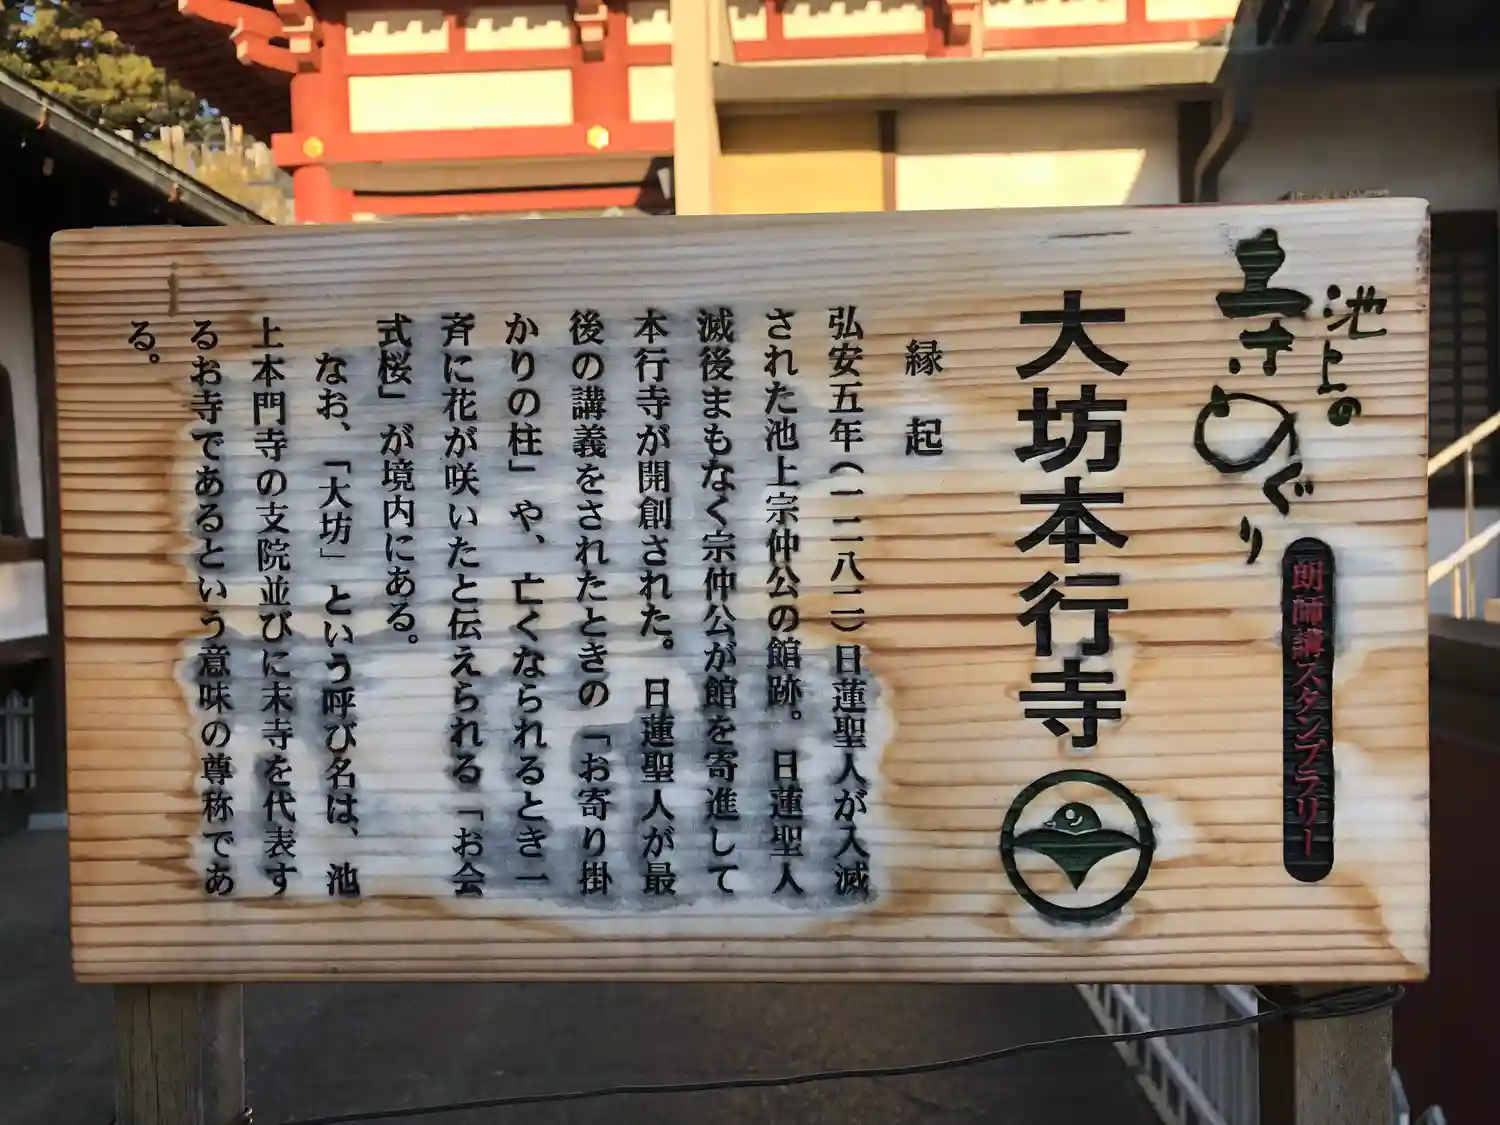 池上の
寺めぐり
朗師講スタンプラリー
大坊本行寺
縁起
弘安五年(一二八二)日蓮聖人が入滅
された池上宗仲公の館跡。日蓮聖人
滅後まもなく宗仲公が館を寄進して
本行寺が開創された。日蓮聖人が最
後の講義をされたときの「お寄り掛
かりの柱」や、亡くなられるとき一
斉に花が咲いたと伝えられる「お会
式桜」が境内にある。
なお、「大坊」という呼び名は、池
上本門寺の支院並びに末寺を代表す
るお寺であるという意味の尊称であ
る。